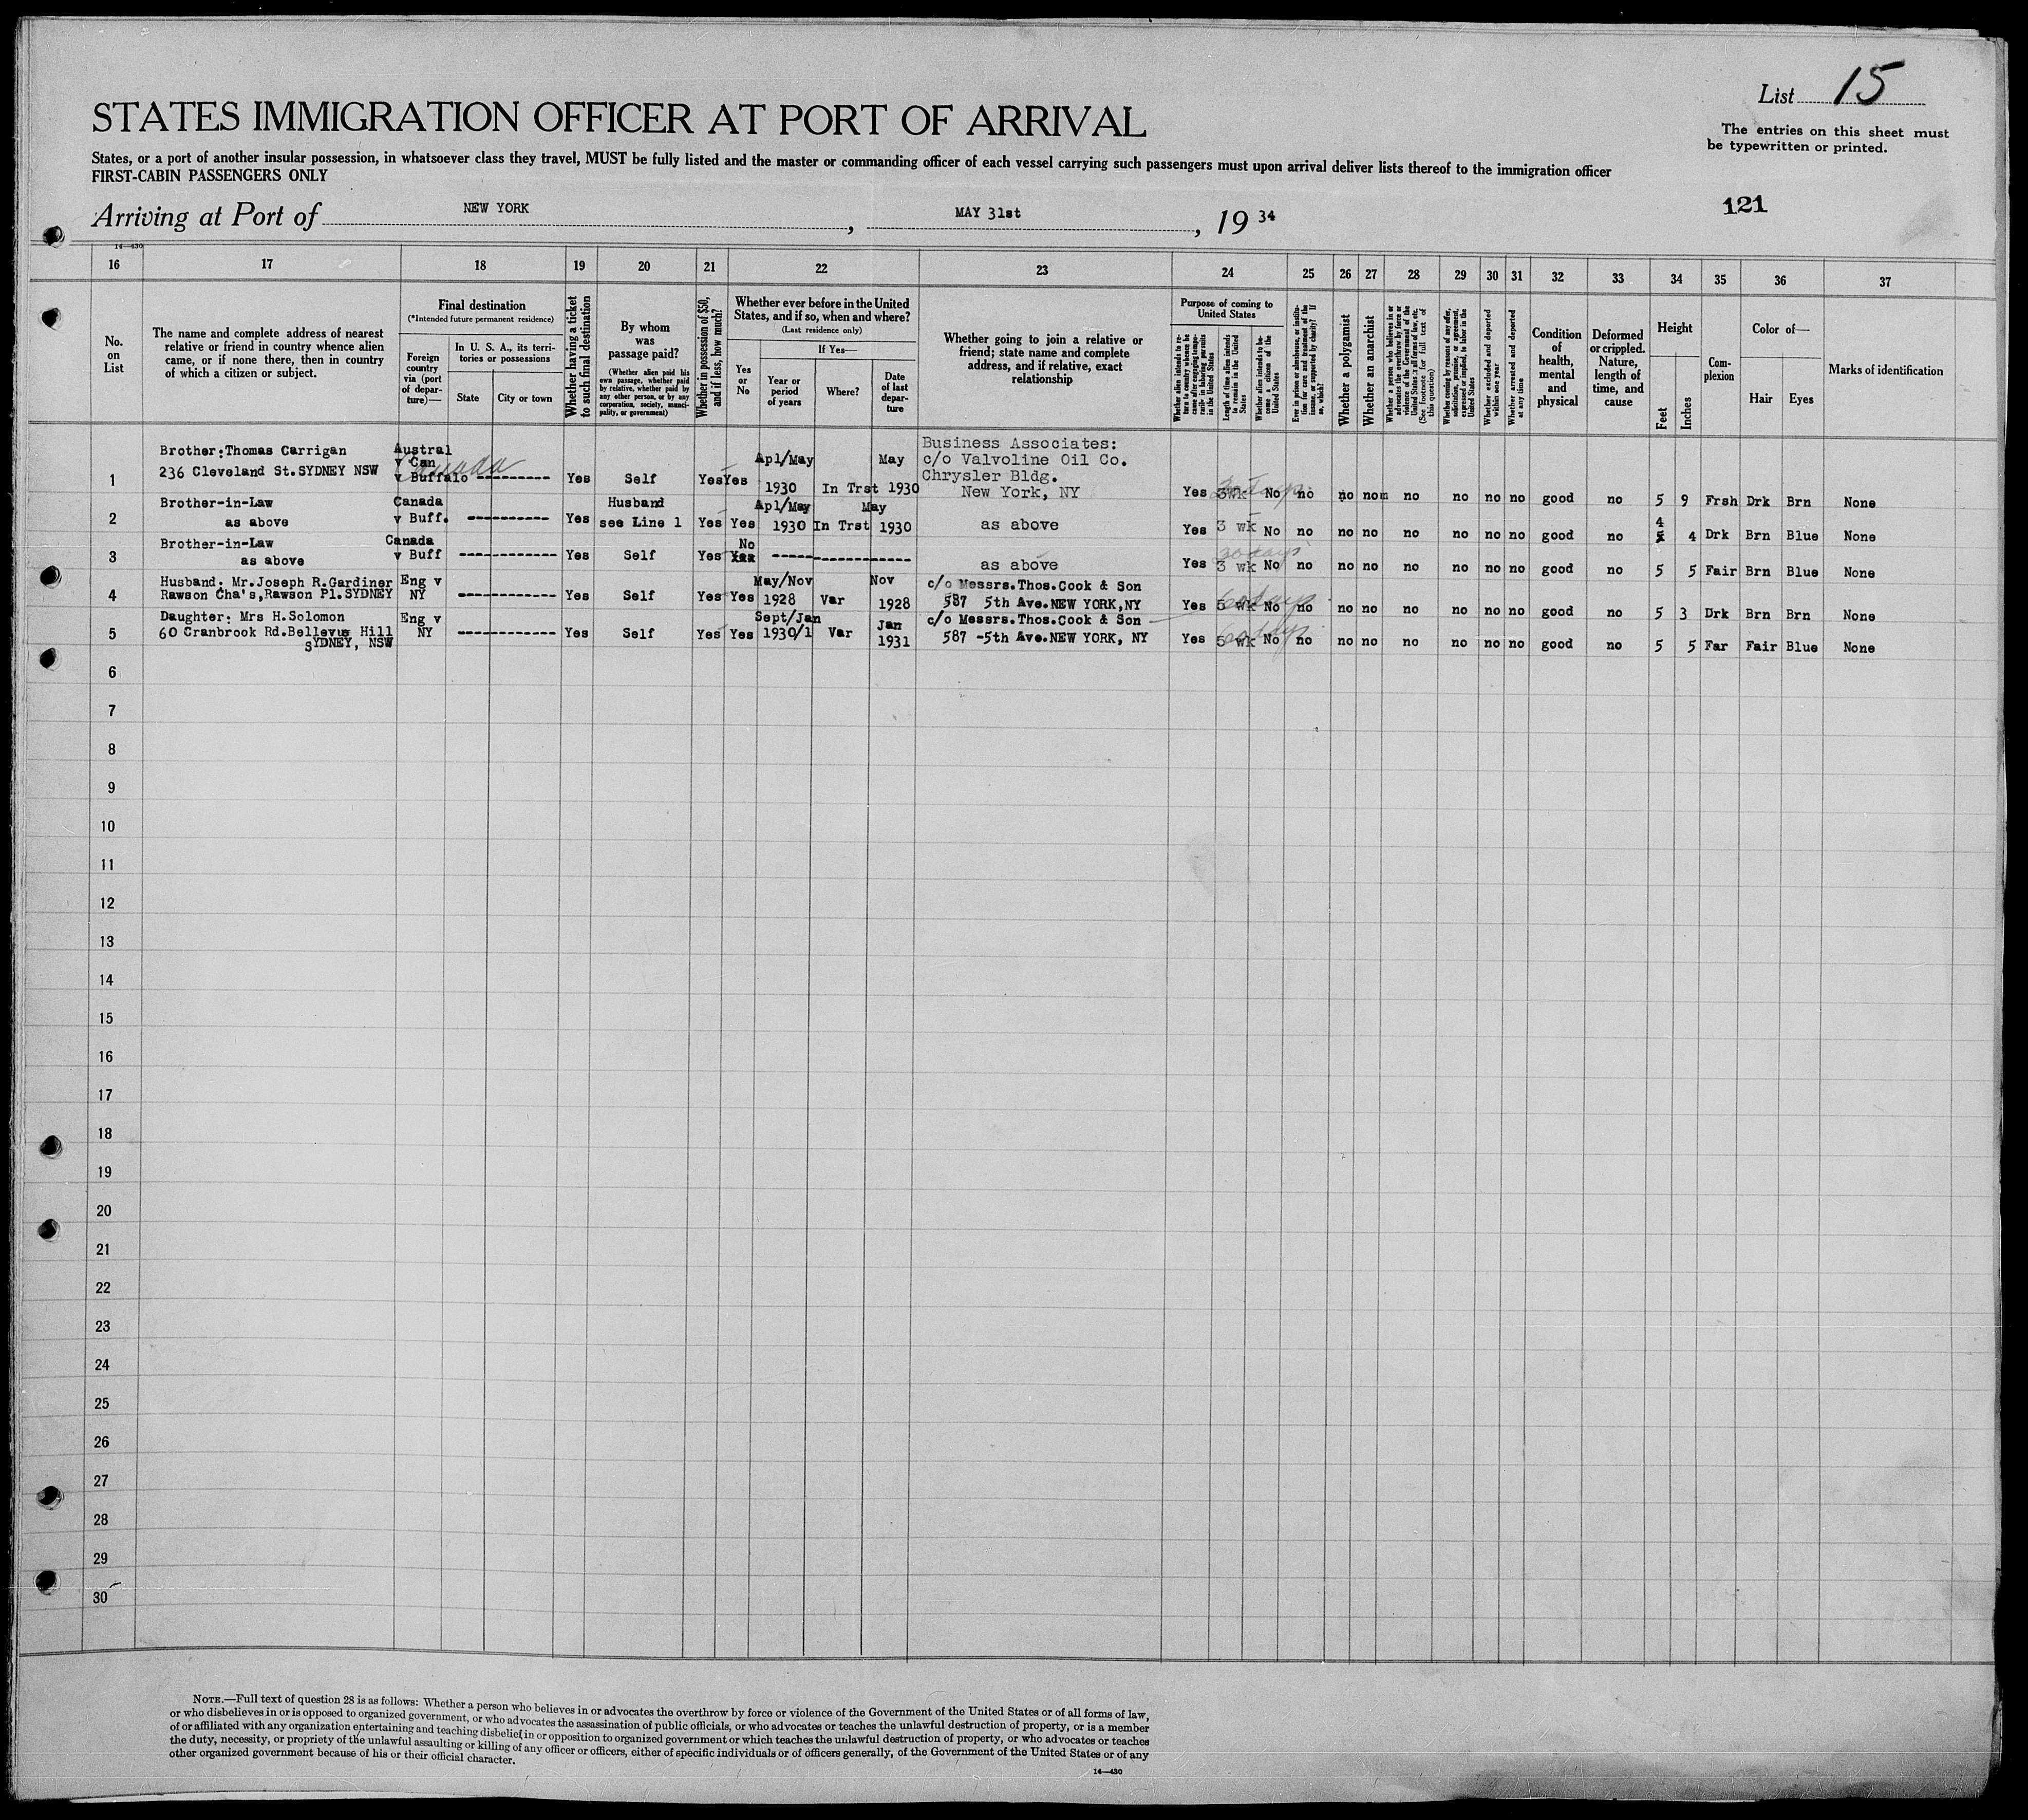 List 15
STATES IMMIGRATION OFFICER AT PORT OF ARRIVAL
The entries on this sheet must
be typewritten or printed.
States, or a port of another insular possession, in whatsoever class they travel, MUST be fully listed and the master or commanding officer of each vessel carrying such passengers must upon arrival deliver lists thereof to the immigration officer
FIRST-CABIN PASSENGERS ONLY
Arriving at Port of NEW YORK, MAY 31st, 19 34
121
14—430
16 17 18 19 20 21 22 23 24 25 26 27 28 29 30 31 32 33 34 35 36 37
No.
on
List
The name and complete address of nearest
relative or friend in country whence alien
came, or if none there, then in country
of which a citizen or subject.
Final destination
(*Intended future permanent residence)
Foreign
country
via (port
of depar-
ture)—
In U. S. A., its terri-
tories or possessions
State
City or town
Whether having a ticket
to such final destination
By whom
was
passage paid?
(Whether alien paid his
own passage, whether paid
by relative, whether paid by
any other person, or by any
corporation, society, munici-
pality, or government)
Whether in possession of $50,
and if less, how much?
Whether ever before in the United
States, and if so, when and where?
(Last residence only)
Yes
or
No
If Yes—
Year or
period
of years
Where?
Date
of last
depar-
ture
Whether going to join a relative or
friend; state name and complete
address, and if relative, exact
relationship
Purpose of coming to
United States
Whether alien intends to re-
turn to country whence he
came after engaging tempo-
rarily in laboring pursuits
in the United States
Length of time alien intends
to remain in the United
States
Whether alien intends to be-
come a citizen of the
United States
Ever in prison or almshouse, or institu-
tion for care and treatment of the
insane, or supported by charity? If
so, which?
Whether a polygamist
Whether an anarchist
Whether a person who believes in or
advocates the overthrow by force or
violence of the Government of the
United States or all forms of law, etc.
(See footnote for full text of
this question)
Whether coming by reason of any offer,
solicitation, promise, or agreement,
expressed or implied, to labor in the
United States
Whether excluded and deported
within one year
Whether arrested and deported
at any time
Condition
of
health,
mental
and
physical
Deformed
or crippled.
Nature,
length of
time, and
cause
Height
Feet
Inches
Com-
plexion
Color of—
Hair
Eyes
Marks of identification
Brother:Thomas Carrigan Austral Business Associates:
v Can Canada Apl/May May c/o Valvoline Oil Co.
1 236 Cleveland St.SYDNEY NSW v Buffalo ---------- Yes Self Yes Yes 1930 In Trst 1930 Chrysler Bldg.
New York, NY Yes 3wk No no no no no no no no good no 5 9 Frsh Drk Brn None
Brother-in-Law Canada Husband Apl/May May
2 as above v Buff. ----------- Yes see Line 1 Yes Yes 1930 In Trst 1930 as above Yes 3 wk No no no no no no no no good no 4 4 Drk Brn Blue None
Brother-in-Law Canada No 30 days
3 as above v Buff ------------- Yes Self Yes Yes ----------------- as above Yes 3 wk No no no no no no no no good no 5 5 Fair Brn Blue None
Husband: Mr.Joseph R.Gardiner Eng v May/Nov Nov c/o Messrs.Thos.Cook & Son
4 Rawson Cha's,Rawson Pl.SYDNEY NY ------------- Yes Self Yes Yes 1928 Var 1928 587 5th Ave.NEW YORK,NY Yes 5 wk 60 days No no no no no no no no good no 5 3 Drk Brn Brn None
Daughter: Mrs H.Solomon Eng v Sept/Jan Jan c/o Messrs.Thos.Cook & Son
5 60 Cranbrook Rd.Bellevue Hill NY ------------- Yes Self Yes Yes 1930/1 Var 1931 587 -5th Ave.NEW YORK, NY Yes 5 wk 60 days No no no no no no no no good no 5 5 Far Fair Blue None
SYDNEY, NSW
6
7
8
9
10
11
12
13
14
15
16
17
18
19
20
21
22
23
24
25
26
27
28
29
30
NOTE.—Full text of question 28 is as follows: Whether a person who believes in or advocates the overthrow by force or violence of the Government of the United States or of all forms of law,
or who disbelieves in or is opposed to organized government, or who advocates the assassination of public officials, or who advocates or teaches the unlawful destruction of property, or is a member
of or affiliated with any organization entertaining and teaching disbelief in or opposition to organized government or which teaches the unlawful destruction of property, or who advocates or teaches
the duty, necessity, or propriety of the unlawful assaulting or killing of any officer or officers, either of specific individuals or of officers generally, of the Government of the United States or of any
other organized government because of his or their official character.
14—430